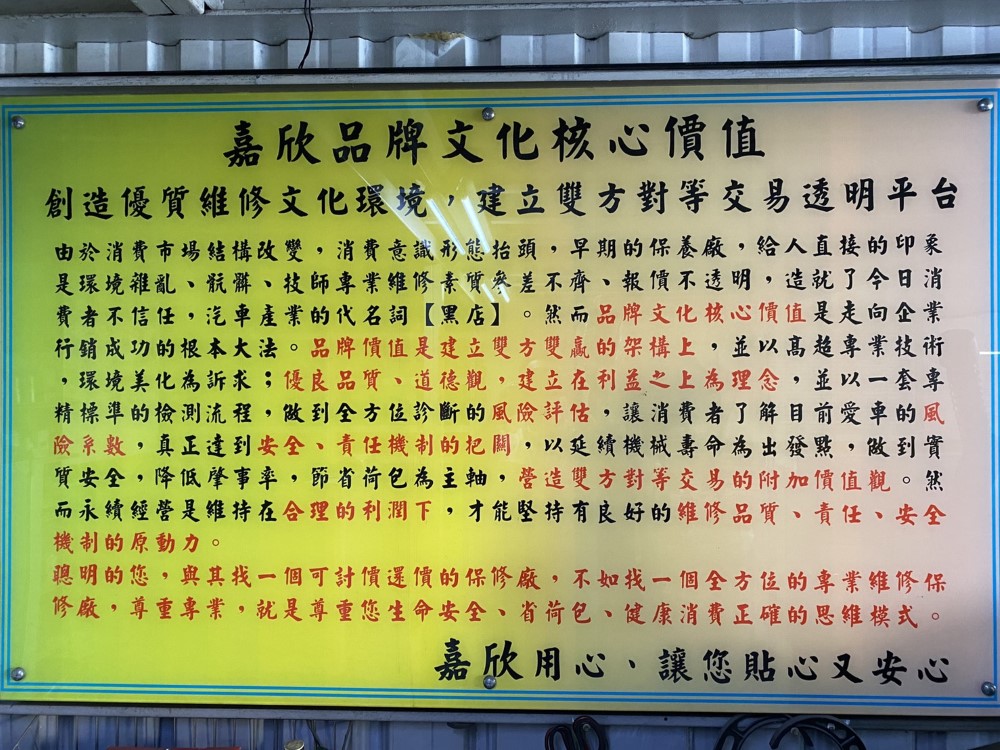 嘉欣品牌文化核心價值
創造優質維修文化環境，建立雙方對等交易透明平台
由於消費市場結構改變，消費意識形態抬頭，早期的保養廠，給人直接的印象
是環境雜亂、骯髒、技師專業維修素質參差不齊、報價不透明，造就了今日消
費者不信任，汽車產業的代名詞【黑店】。然而品牌文化核心價值是走向企業
行銷成功的根本大法。品牌價值是建立雙方雙贏的架構上，並以高超專業技術
，環境美化為訴求；優良品質、道德觀，建立在利益之上為理念，並以一套專
精標準的檢測流程，做到全方位診斷的風險評估，讓消費者了解目前愛車的風
險系數，真正達到安全、責任機制的把關，以延續機械壽命為出發點，做到實
質安全，降低肇事率，節省荷包為主軸，營造雙方對等交易的附加價值觀。然
而永續經營是維持在合理的利潤下，才能堅持有良好的維修品質、責任、安全
機制的原動力。
聰明的您，與其找一個可討價還價的保修廠，不如找一個全方位的專業維修保
修廠，尊重專業，就是尊重您生命安全、省荷包、健康消費正確的思維模式。
嘉欣用心、讓您貼心又安心